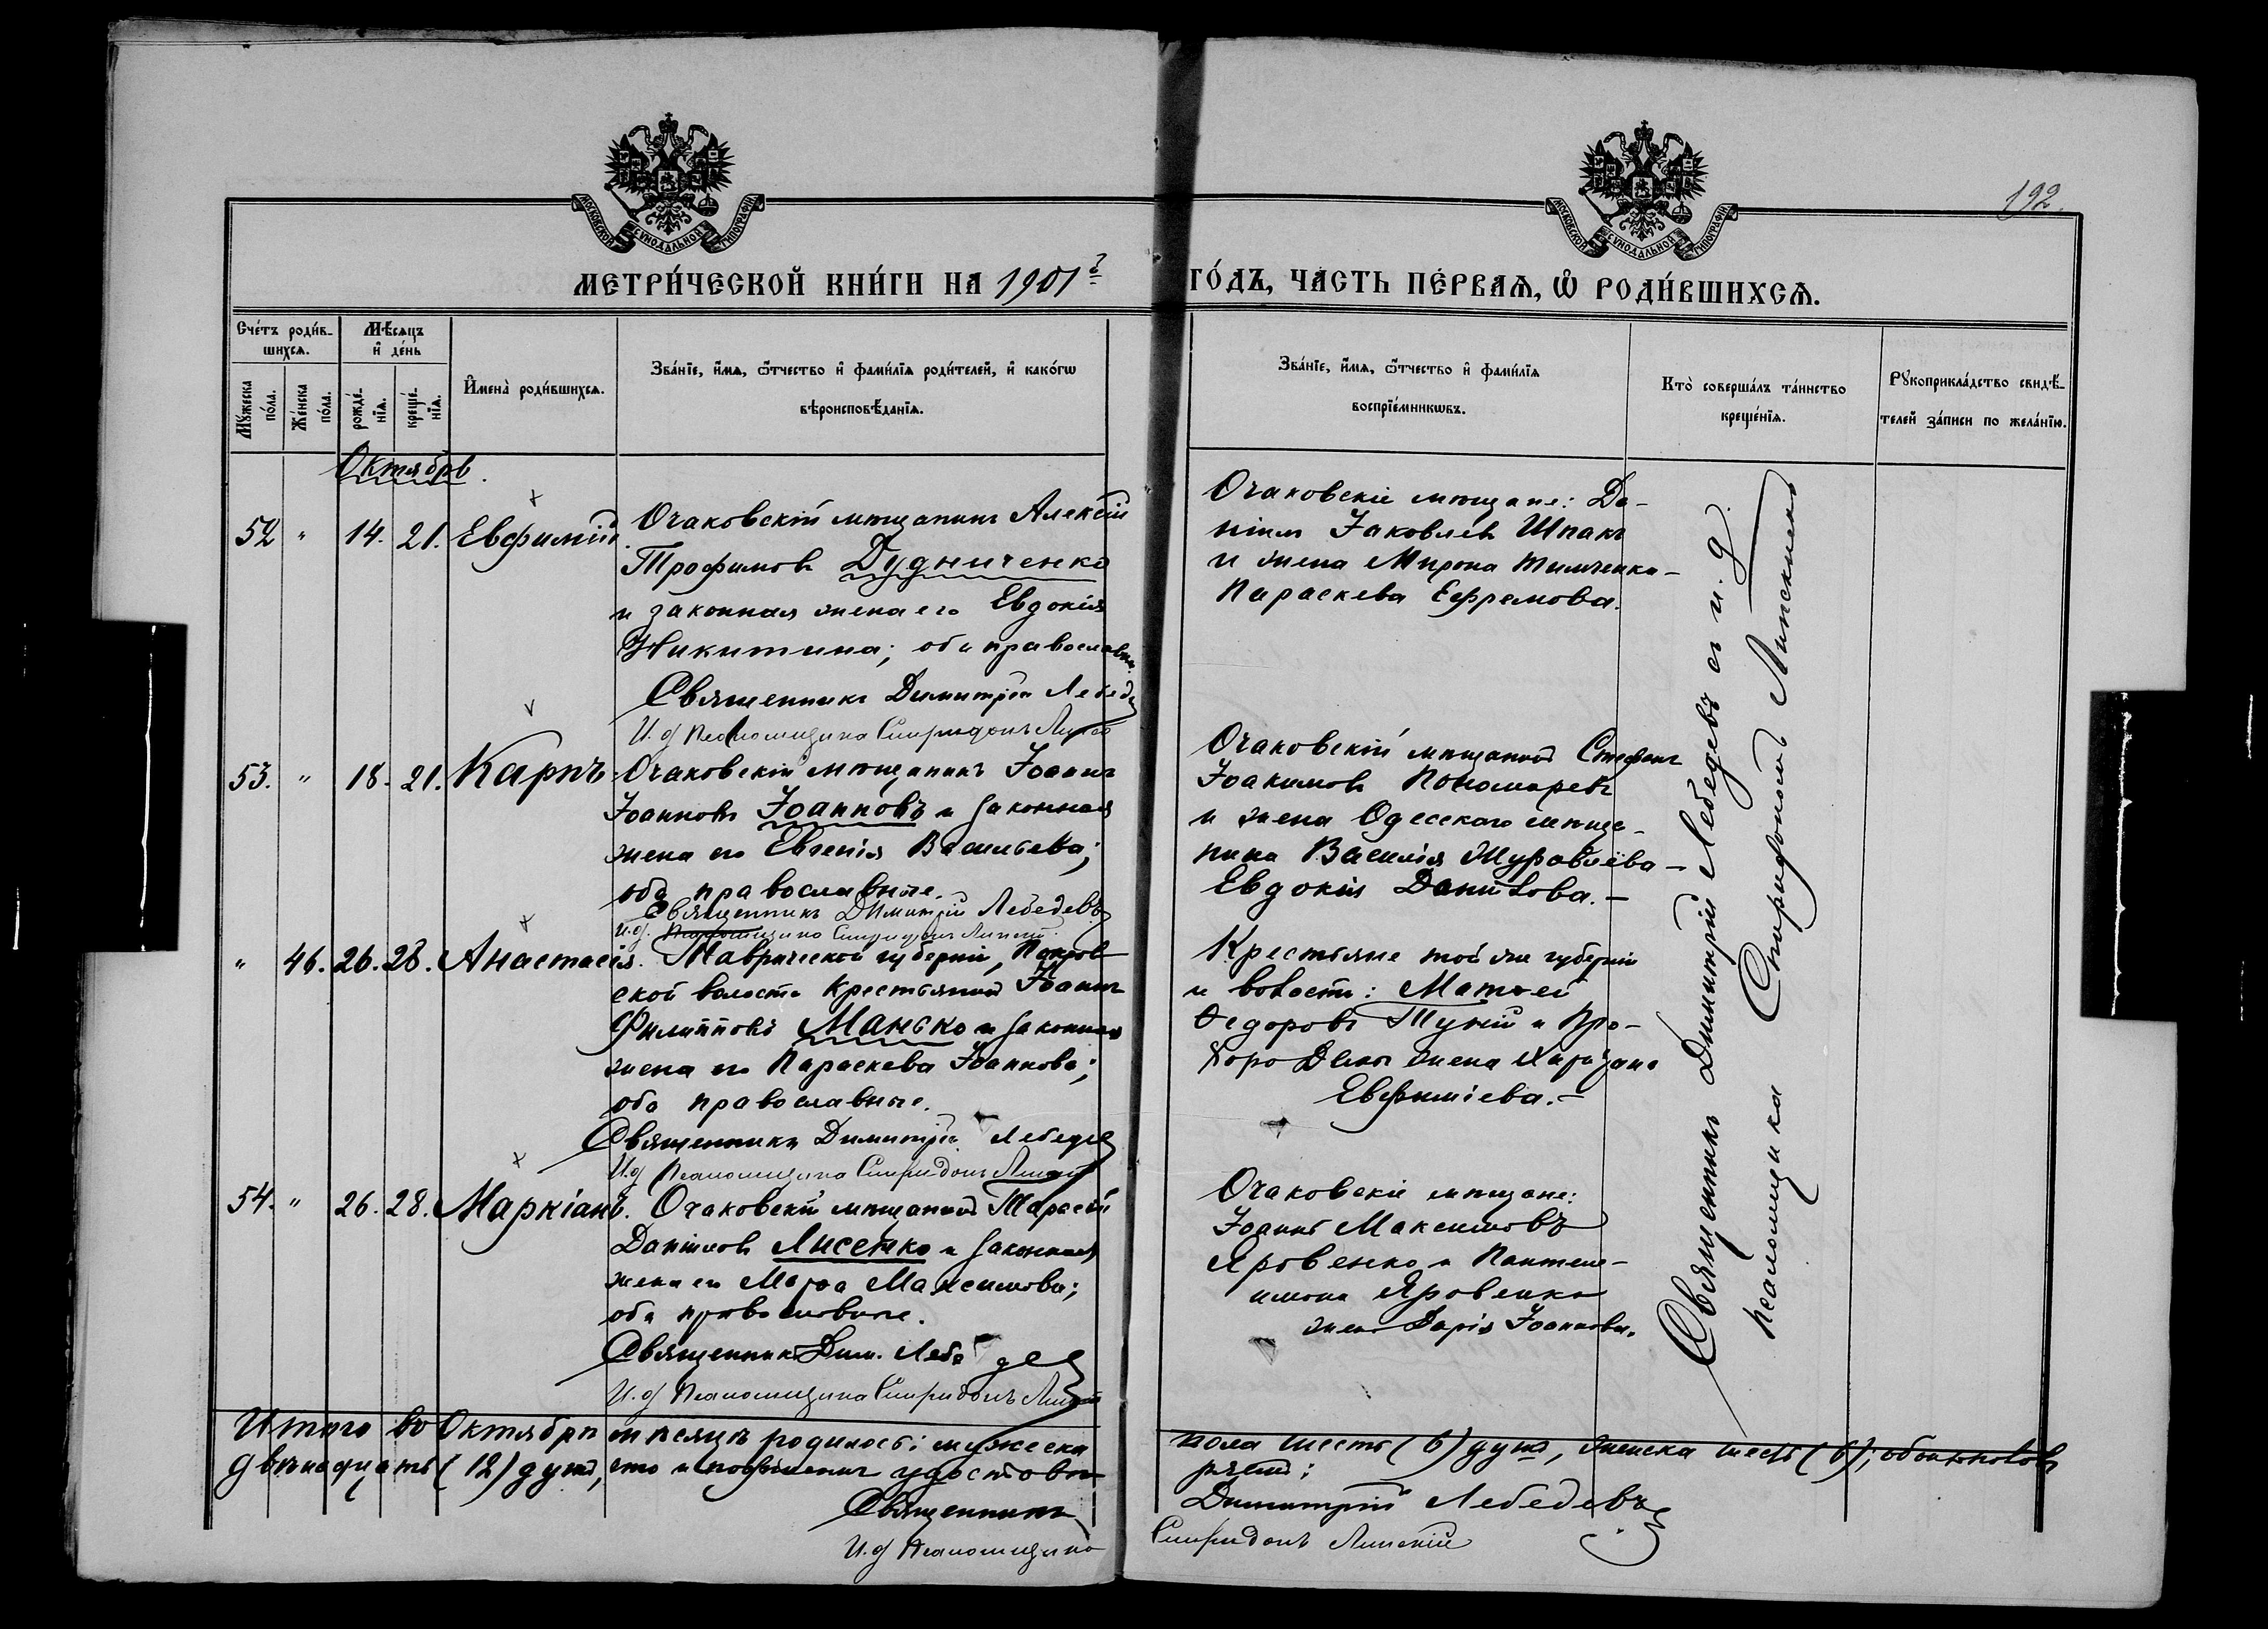 МОСКОВСКОЙ СѴНОДАЛЬНОЙ ТИПОГРАФІИ
МОСКОВСКОЙ СѴНОДАЛЬНОЙ ТИПОГРАФІИ
192.
МЕТРИ́ЧЕСКОЙ КНИ́ГИ НА 1901 г
ГО́ДЪ, ЧА́СТЬ ПЕ́РВАѦ, Ѡ҆ РОДИ́ВШИХСѦ.
Сче́тъ роди́в-
шихсѧ.
Мѣ́сѧцъ
и҆ де́нь
Мꙋ́жеска
по́ла.
Же́нска
по́ла.
рожде́-
нїѧ.
креще́-
нїѧ.
И҆мена̀ роди́вшихсѧ.
Зва́нїе, и҆́мѧ, ѻ҆́тчество и҆ фами́лїѧ роди́телей, и҆ како́гѡ
вѣроисповѣ́данїѧ.
Зва́нїе, и҆́мѧ, ѻ҆́тчество и҆ фами́лїѧ
воспрїе́мникѡвъ.
Кто̀ соверша́лъ та́инство
креще́нїѧ.
Рꙋкоприкла́дство свидѣ́-
телей за́писи по жела́нїю.
Октябрь.
52 " 14. 21. Евфимій
Очаковскій мѣщанинъ Алексій
Трофимовъ Дудниченко
и законная жена его Евдокія
Никитина; оба православн.
Священникъ Димитрій Лебедевъ
И. д. Псаломщика Спиридонъ Липскій
Очаковскіе мѣщане: Да-
ніилъ Іаковлевъ Шпакъ
и жена Мирона Тимченка-
Параскева Ефремова.
53. " 18. 21. Карпъ
Очаковскій мѣщанинъ Іоаннъ
Іоанновъ Іоанновъ и законная
жена его Евгенія Васильева;
оба православные.
Священникъ Димитрій Лебедевъ
И. д. Псаломщика Спиридонъ Липскій
Очаковскій мѣщанинъ Стефанъ
Іоакимовъ Пономаревъ
и жена Одесскаго мѣща-
нина Василія Журавлёва -
Евдокія Данилова. -
" 46. 26. 28. Анастасія.
Таврической губерніи, Покров-
ской волости крестьянинъ Іоаннъ
Филипповъ Манько и законная
жена его Параскева Іоаннова;
оба православные.
Священникъ Димитрій Лебедевъ
И. д. Псаломщика Спиридонъ Липскій
Крестьяне той же губерніи
и волости: Матѳей
Ѳедоровъ и Про-
жена
Евфиміева. -
54. " 26. 28. Маркіанъ.
Очаковскій мѣщанинъ Тарасій
Даніиловъ Лисенко и законная
жена его Марѳа Максимова;
оба православные.
Священникъ Дим. Лебедевъ
И. д. Псаломщика Спиридонъ Липскій
Очаковскіе мѣщане:
Іоаннъ Максимовъ
Яровенко и Пантеле-
имона Яровенка
жена Дарія Іоаннова.
Священникъ Димитрій Лебедевъ съ и. д.
псаломщика Спиридономъ Липскимъ
Итого во Октябрѣ мѣсяцѣ родилось: мужеска
пола шесть (6) душъ, женска шесть (6); обоихъ половъ
двѣнадцать (12) душъ,
Священникъ
Димитрій Лебедевъ
И. д. Псаломщика
Спиридонъ Липскій